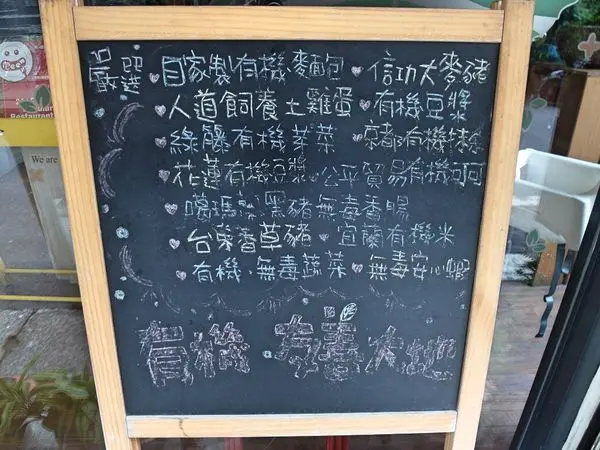 嚴選
自家製有機麵包 信功大麥豬
人道飼養土雞蛋 有機豆漿
綠藤有機芽菜 京都有機抹茶
花蓮有機豆漿 公平貿易有機可可
噶瑪蘭黑豬無毒香腸
台東香草豬 宜蘭有機米
有機.無毒蔬菜 無毒安心蝦
有機 友善大地
We are
Restaurant